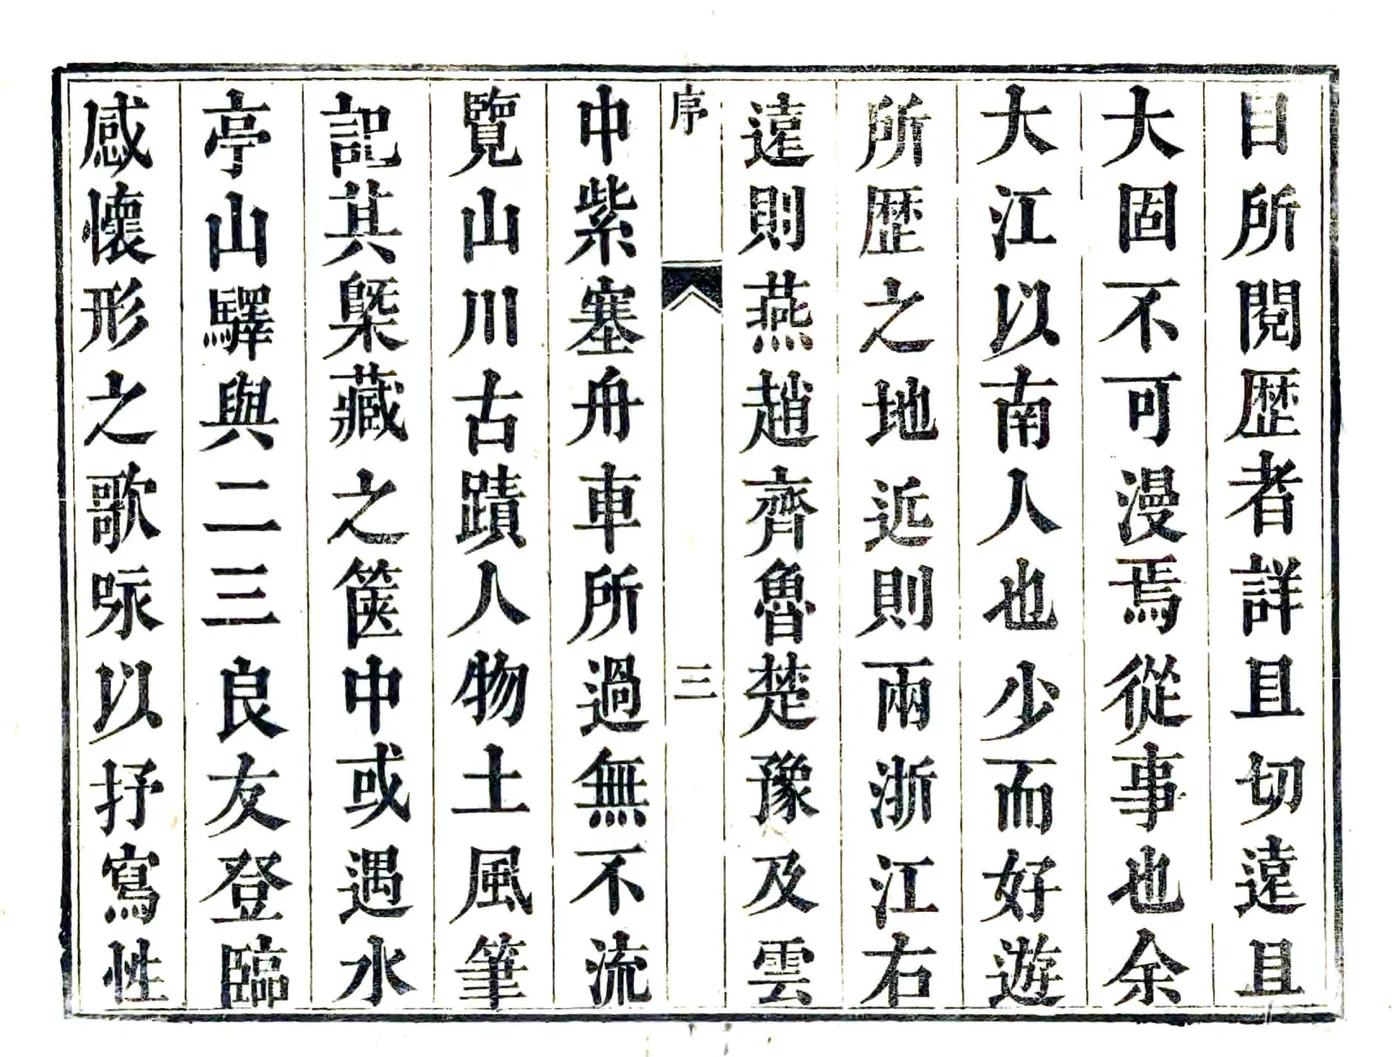 目所閱歴者詳且切遠且
大固不可漫焉從事也余
大江以南人也少而好遊
所歴之地近則兩浙江右
遠則燕趙齊魯楚豫及雲
序
三
中紫塞舟車所過無不流
覽山川古蹟人物土風筆
記其槩藏之篋中或遇水
亭山驛與二三良友登臨
感懷形之歌咏以抒寫性